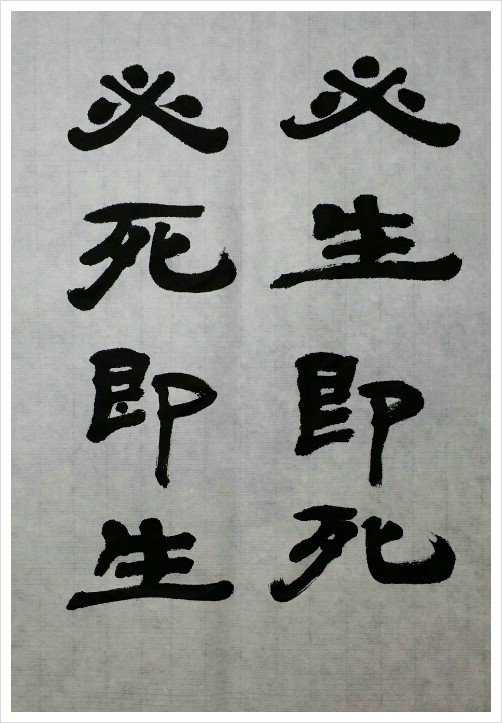 必生即死
必死即生